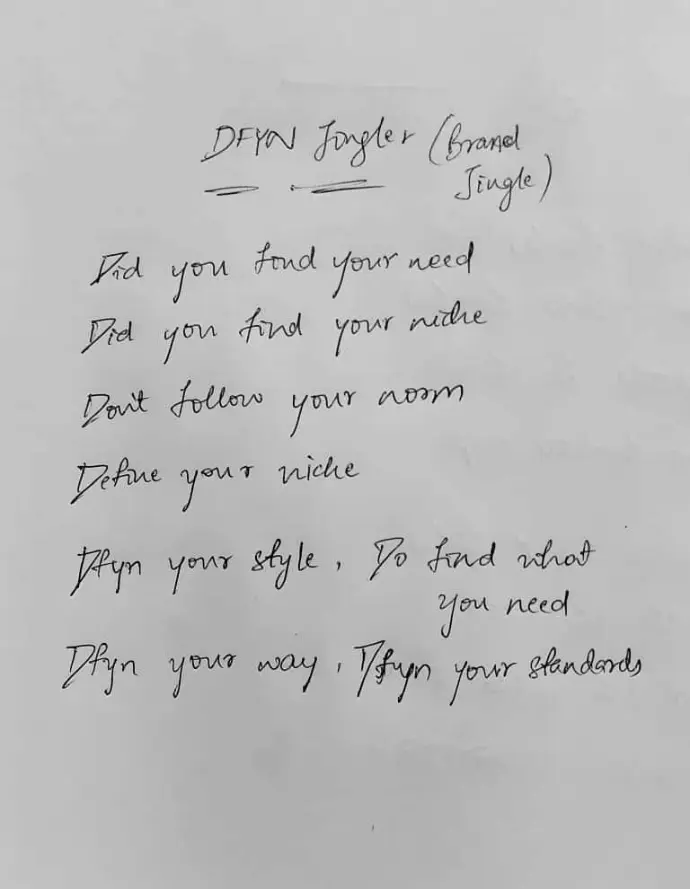 DFYN Jingler (Brand
Jingle)
Did you find your need
Did you find your niche
Don't follow your norm
Define your niche
Dfyn your style, Do find what
you need
Dfyn your way, Dfyn your standards